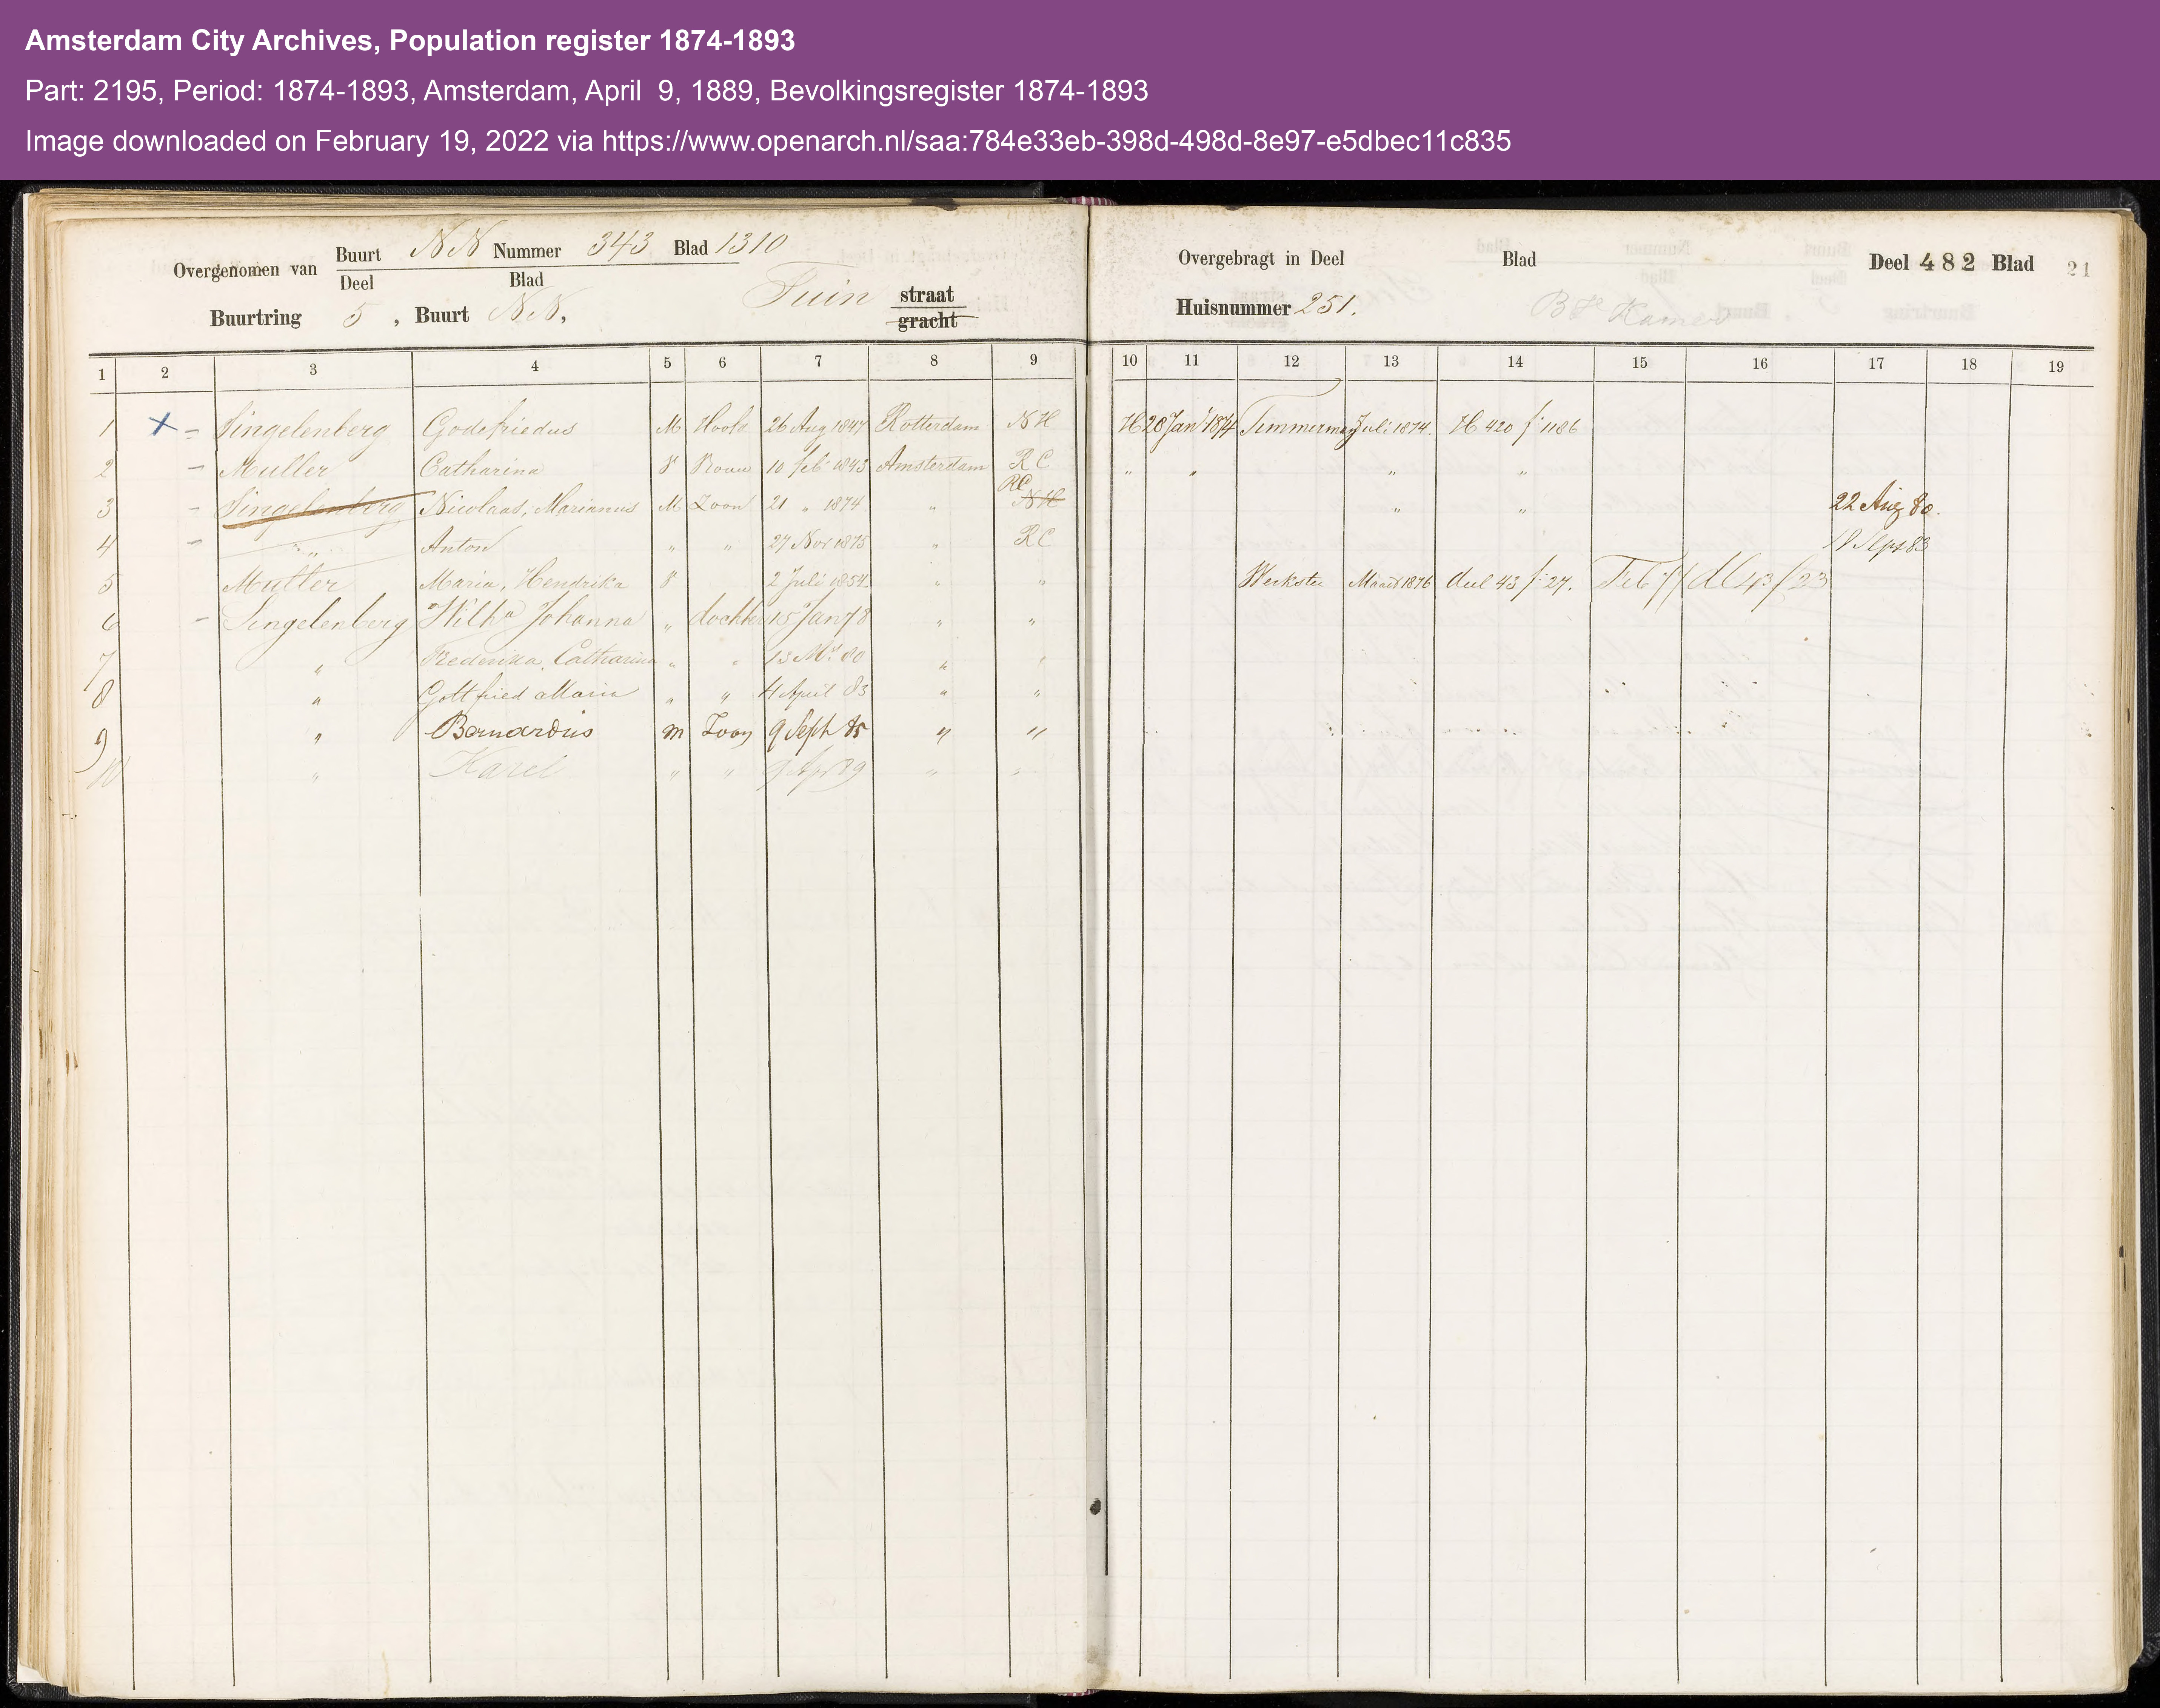 Amsterdam City Archives, Population register 1874-1893
Part: 2195, Period: 1874-1893, Amsterdam, April  9, 1889, Bevolkingsregister 1874-1893
Image downloaded on February 19, 2022 via https://www.openarch.nl/saa:784e33eb-398d-498d-8e97-e5dbec11c835
Overgenomen van Buurt NN Nummer 343 Blad 1310
Deel Blad
Buurtring 5, Buurt NN, Tuin straat
gracht
Overgebragt in Deel Blad Deel 482 Blad 21
Huisnummer 251. Kamer
1 2 3 4 5 6 7 8 9 10 11 12 13 14 15 16 17 18 19
1 Singelenberg Godefriedus M Hoofd 26 Aug 1847 Rotterdam NH H 28 Jan 1874 Timmerman Juli 1874. H 420 f 1186
2 Muller Catharina V Vrouw 10 feb 1843 Amsterdam RC " " " "
RC
3 Singelenberg Nicolaas, Marianus M Zoon 21 " 1874 " NH " " 22 Aug 80.
4 " Anton " " 27 Nov 1875 " RC Sept 83
5 Muller Maria, Hendrika V 2 Juli 1854 " " Werkster Maart 1876 deel 43 f 27. Feb 77 dl 43 f 23
6 Singelenberg Wilh^a Johanna " dochter 15 Jan 78 " "
7 " Frederika, Catharina " " 13 Mt 80 " "
8 " Gottfried Maria " " 4 April 83 " "
9 " Bernardus m Zoon 9 Sept 85 " "
10 " Karel " " 9 Apr 89 " "